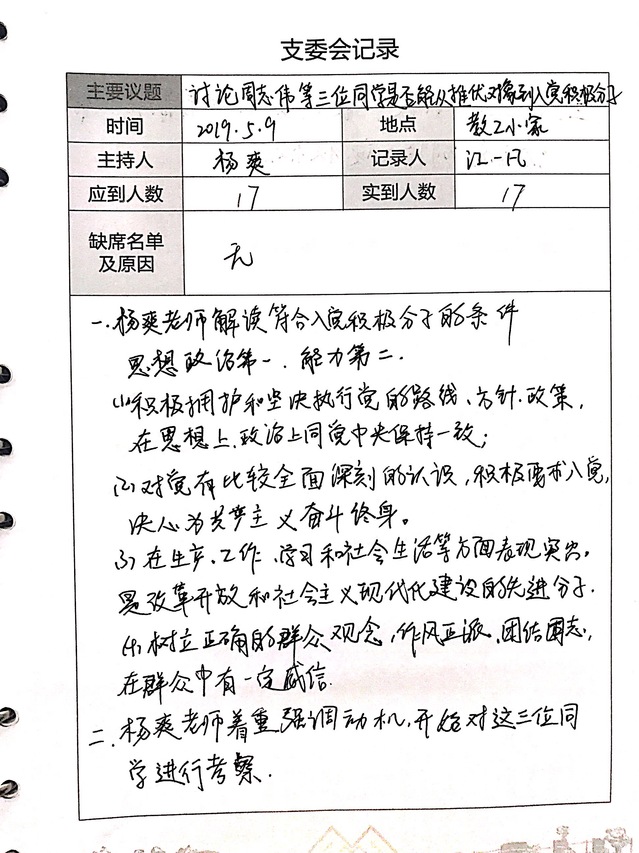 支委会记录
主要议题 讨论周志伟等三位同学是否能从推优对象到入党积极分子
时间 2019.5.9 地点 教工小家
主持人 杨爽 记录人 江一凡
应到人数 17 实到人数 17
缺席名单及原因 无
一.杨爽老师解读符合入党积极分子的条件
思想政治第一.能力第二.
(1)积极拥护和坚决执行党的路线、方针.政策,
在思想上.政治上同党中央保持一致;
(2)对党有比较全面深刻的认识,积极要求入党,
决心为共产主义奋斗终身。
(3)在生产.工作.学习和社会生活等方面表现突出.
是改革开放和社会主义现代化建设的先进分子.
(4)树立正确的群众观念,作风正派,团结同志,
在群众中有一定威信.
二.杨爽老师着重强调动机,开始对这三位同
学进行考察.